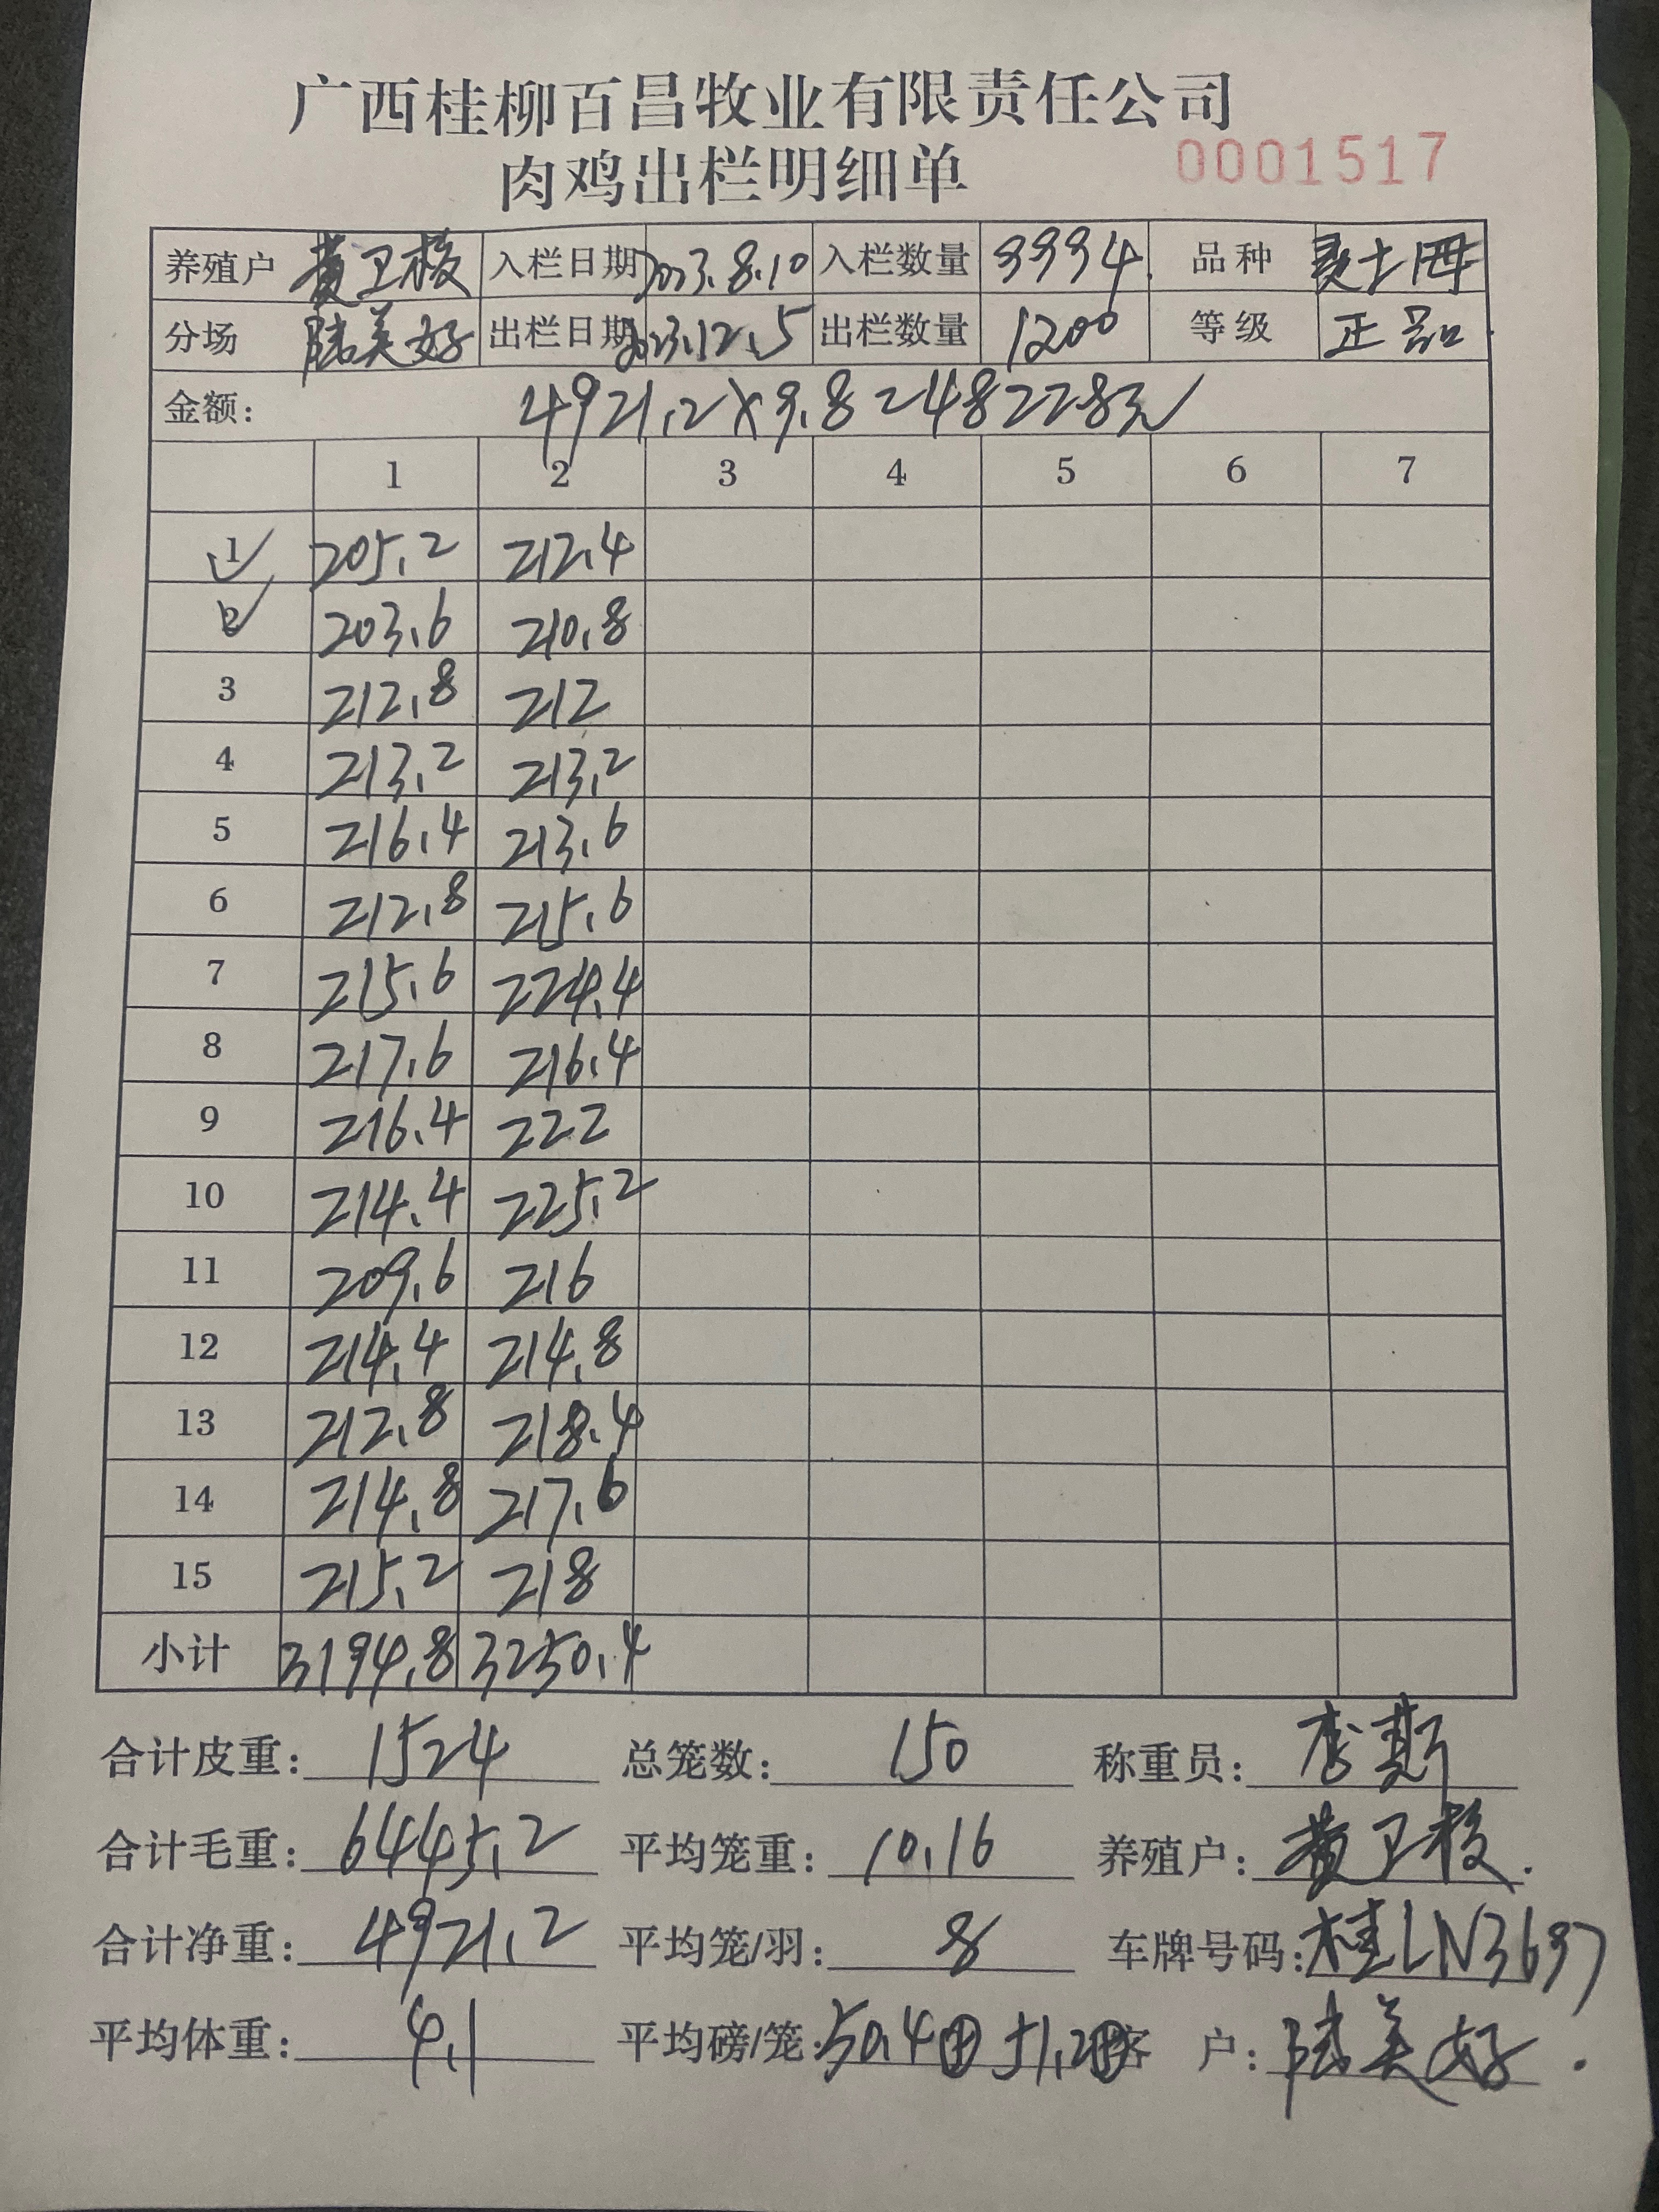 广西桂柳百昌牧业有限责任公司
肉鸡出栏明细单 0001517
养殖户 黄卫核 入栏日期 2023.8.10 入栏数量 9994. 品种
分场 陆美好 出栏日期 2023.12.5 出栏数量 1200 等级 正品.
金额: 4921.2×9.8=48228元
1 2 3 4 5 6 7
1 205.2 212.4
2 203.6 210.8
3 212.8 212
4 213.2 213.2
5 216.4 213.6
6 212.8 215.6
7 215.6 224.4
8 217.6 216.4
9 216.4 222
10 214.4 225.2
11 209.6 216
12 214.4 214.8
13 212.8 218.4
14 214.8 217.6
15 215.2 218
小计 3194.8 3250.4
合计皮重: 1524 总笼数: 150 称重员: 李斯
合计毛重: 6445.2 平均笼重: 10.16 养殖户: 黄卫核.
合计净重: 4921.2 平均笼/羽: 8 车牌号码: 桂LN3697
平均体重: 4.1 平均磅/笼: 50.4 51.2 客 户: 陆美好.